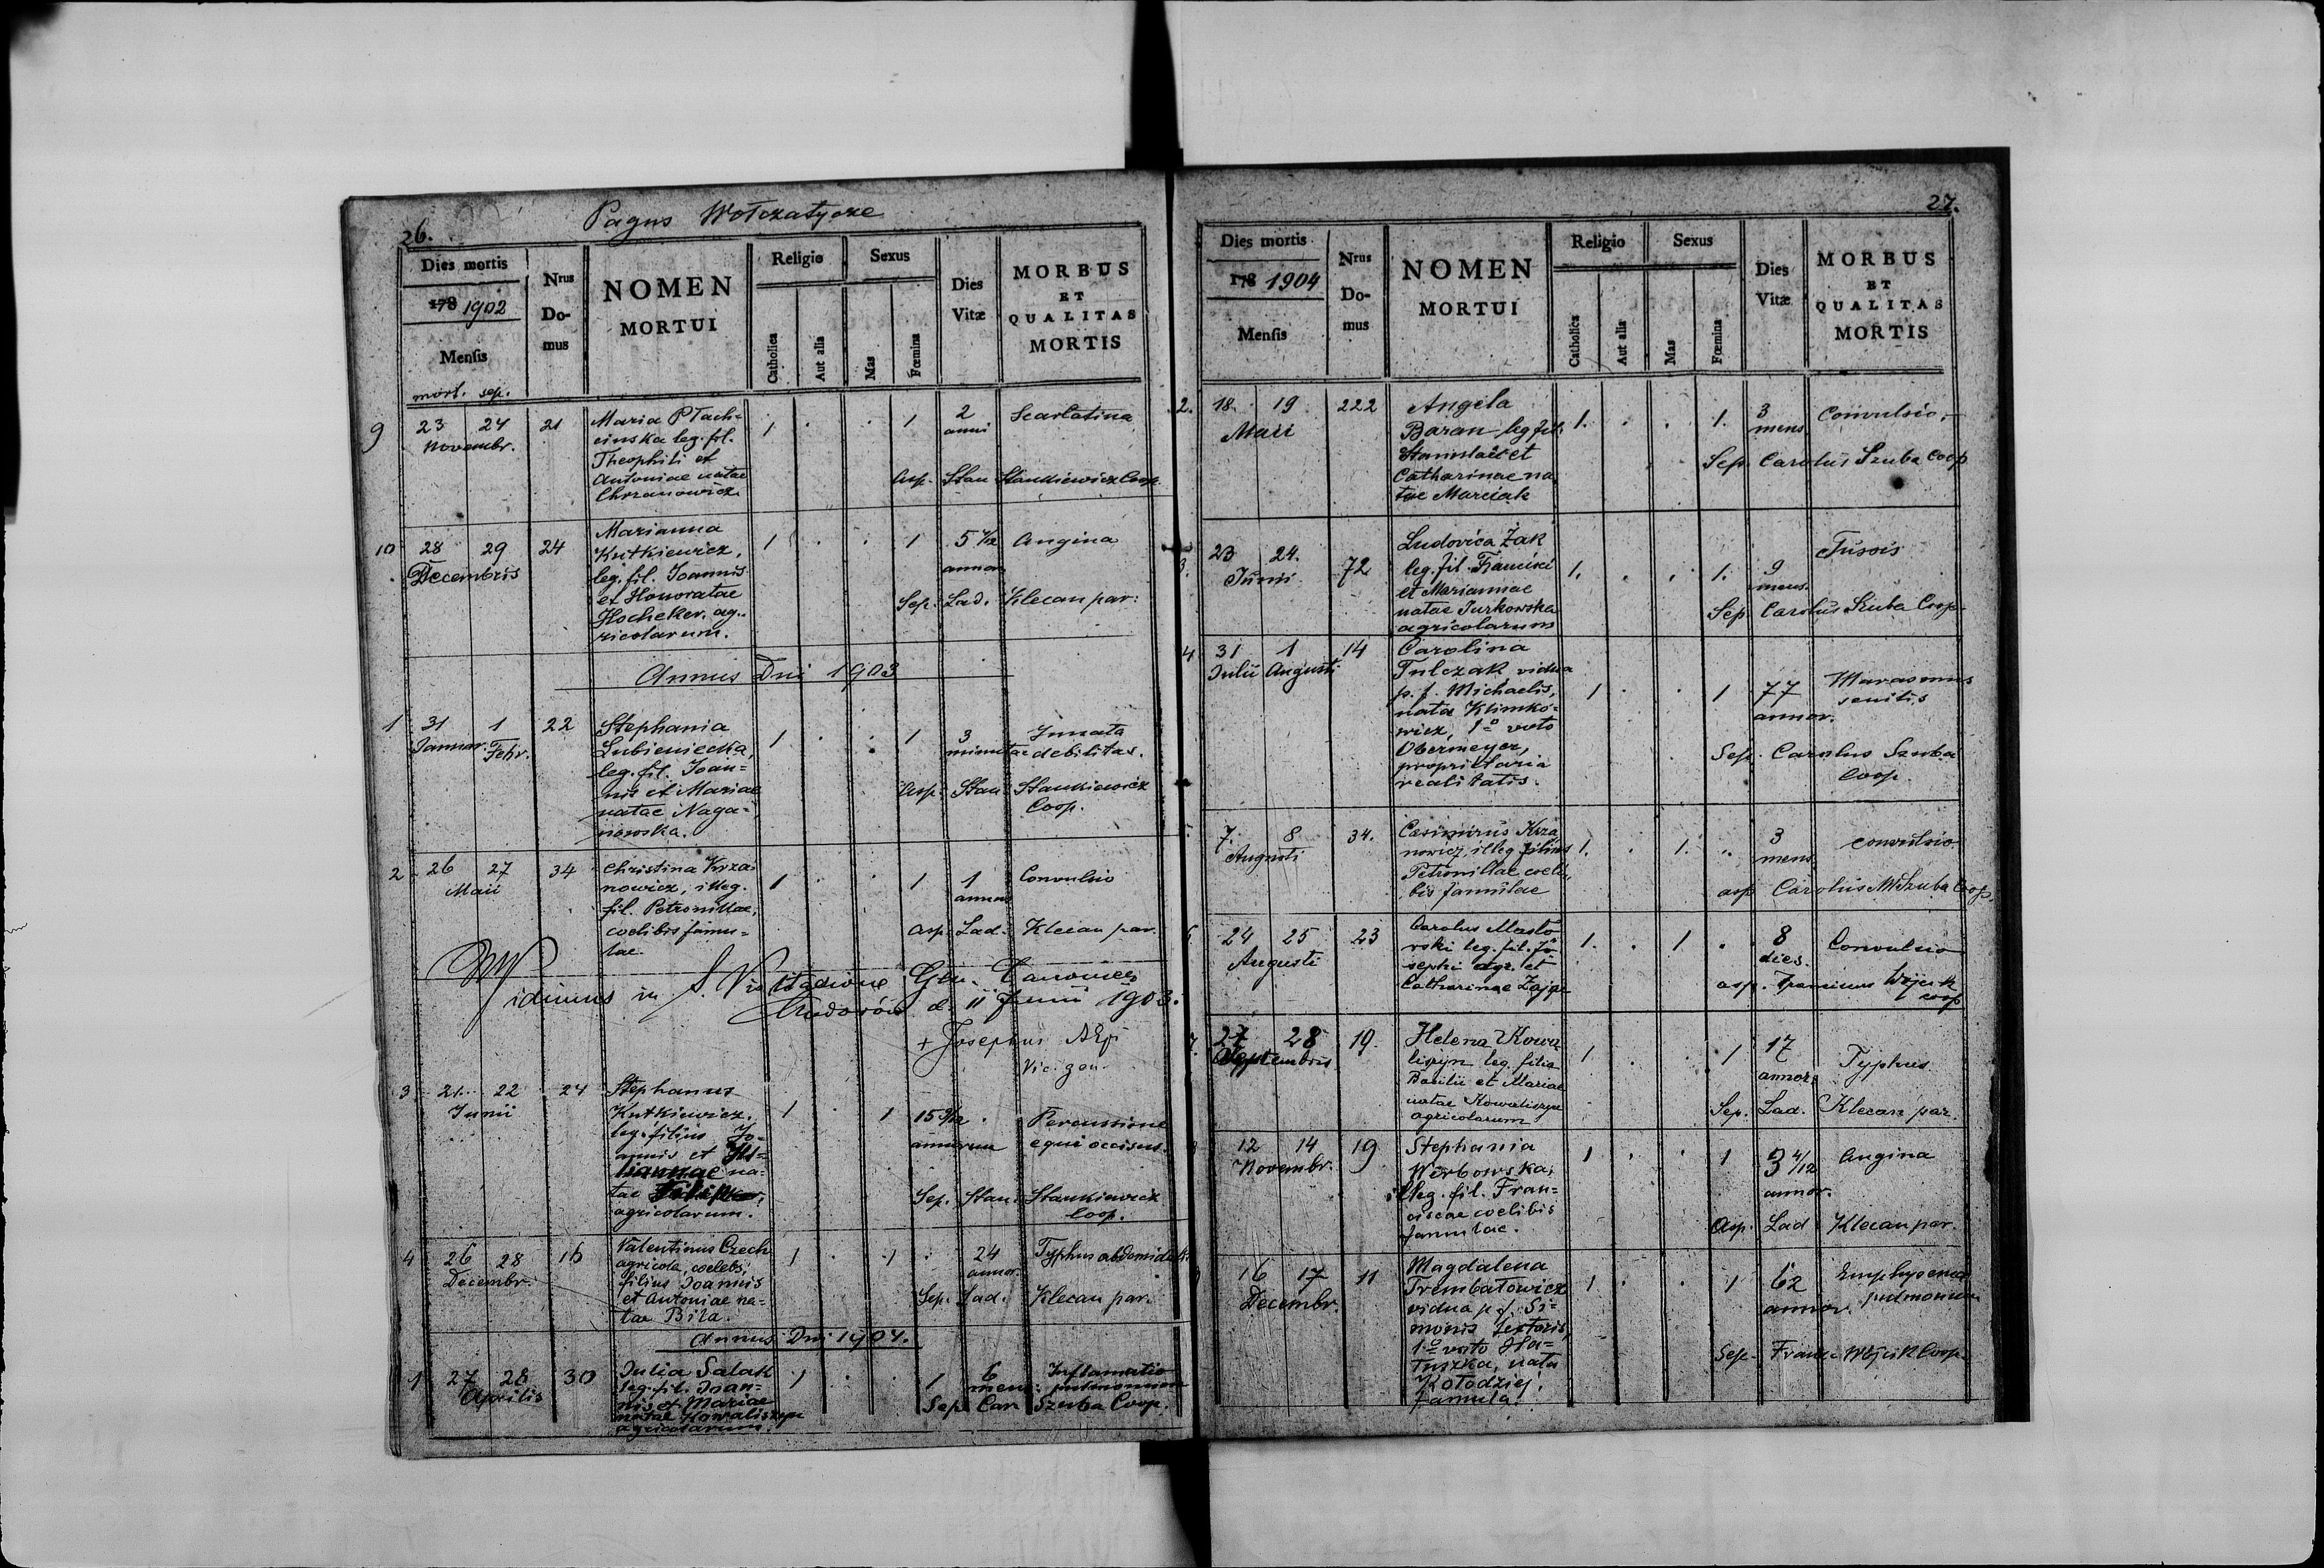 26.
Pagus Wołczatycze
Dies mortis
178 1902
Mensis
mort. sep.
Nrus
Do-
mus
NOMEN
MORTUI
Religio
Catholica
Aut alia
Sexus
Mas
Fœmina
Dies
Vitæ
MORBUS
ET
QUALITAS
MORTIS
9
23 24
Novembr.
21
Maria Płach-
cinska leg. fil.
Theophili et
Antoniae natae
Chrzanowicz
1 . . 1
2
anni
Scarlatina
Asp. Stan Stankiewicz Coop.
10
28 29
Decembris
24
Marianna
Kutkiewicz,
leg. fil. Joannis
et Honoratae
Hocheker. ag-
ricolarum.
1 . . 1
annor.
Angina
Sep. Lad. Klecan par.
Annus Dni 1903
1
31 1
Januar. Febr.
22
Stephania
Lubieniecka,
leg. fil. Joan=
nis et Mariae
natae Naga=
nowska.
1 . . 1
3
minutae
Innata
debilitas.
Asp. Stan Stankiewicz
Coop.
2
26 27
Maii
34
Christina Krza-
nowicz, illeg.
fil. Petronillae,
coelibis famu=
lae.
1 . . 1
1
annus
Convulsio
asp. Lad. Klecan par.
Vidimus in S. Visitatione Gen. Canonica
d. 11 Junii 1903.
+ Josephus
Vic. gen.
3
21 22
Junii
24
Stephanus
Kutkiewicz.
leg. filius Jo-
annis et
na-
tae
agricolarum.
1 . 1
15 9/12 .
annorum
Percussione
equi occisus.
Sep. Stan. Stankiewicz
Coop.
4
26 28
Decembr.
16
Valentinus Czech
agricola, coelebs,
filius Joannis
et Antoniae na=
tae Bila.
1 . 1 .
24
annor.
Typhus abdominalis.
Sep. Lad. Klecan par.
Annus Dni 1904.
1
27 28
Aprilis
30
Julia Salak
leg. fil. Joan=
nis et Mariae
natae Kowaliszyn
agricolarum.
1 . . 1
6
mens.
Inflamatio
pulmonum
Sep Car Szuba Coop.
27.
Dies mortis
178 1904
Mensis
Nrus
Do-
mus
NOMEN
MORTUI
Religio
Catholica
Aut alia
Sexus
Mas
Fœmina
Dies
Vitæ
MORBUS
ET
QUALITAS
MORTIS
2.
18. 19
Maii
222
Angela
Baran leg fil.
Stanislai et
Catharinae na
tae Marciak
1. . . 1.
3
mens
Convulsio.
Sep. Carolus Szuba Coop
3.
23 24.
Junii
72
Ludovica Żak
leg. fil. Francisci
et Mariannae
natae Jurkowska
agricolarum
1. . . 1.
9
mens.
Tussis
Sep Carolus Szuba Coop.
4
31 1
Julii Augusti
14
Carolina
Tulczak, vidua
p. f. Michaelis,
nata Klimko-
wicz, 1º voto
Obermeyer,
proprietaria
realitatis.
1 . . 1
77
annor.
Marasmus
senilis
Sep. Carolus Szuba
Coop.
7. 8
Augusti
34.
Casimirus Krza
nowicz, illeg filius
Petronillae coeli-
bis famulae
1. . 1. .
3
mens
convulsio
asp Carolus M Szuba Coop.
6.
24 25
Augusti
23
Carolus Masło
wski leg. fil. Jo
sephi agr. et
Catharinae Zając
1. . 1 .
8
dies.
Convulsio
asp. Franciscus Wójcik
coop
7.
27 28
Septembris
19.
Helena Kowa
liszyn leg. filia
Basilii et Mariae
natae Kowaliszyn
agricolarum
1 . . 1
17
annor.
Typhus
Sep. Lad. Klecan par.
12 14
Novembr.
19
Stephania
Werbowska,
illeg. fil. Fran=
ciscae coelibis
famulae.
1 . . 1
3 4/12
annor.
Angina
Asp. Lad Klecan par.
16 17
Decembr.
11
Magdalena
Trembatowicz
vidua p. f. Si=
monis textoris,
1º voto Ha=
łuszka, nata
Kołodziej,
famula.
1 . . 1
62
annor.
Emphysema
pulmonum
Sep. Franc. Wójcik Coop.